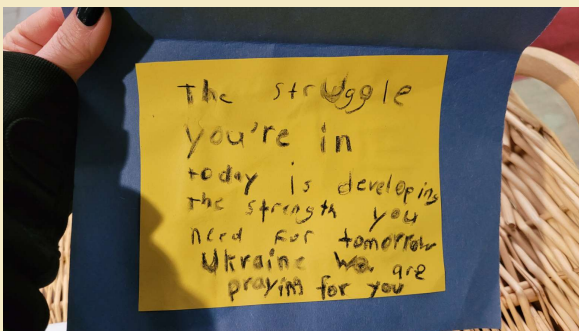 The struggle
you're in
today is developing
the strength you
need for tomorrow
Ukraine we are
praying for you